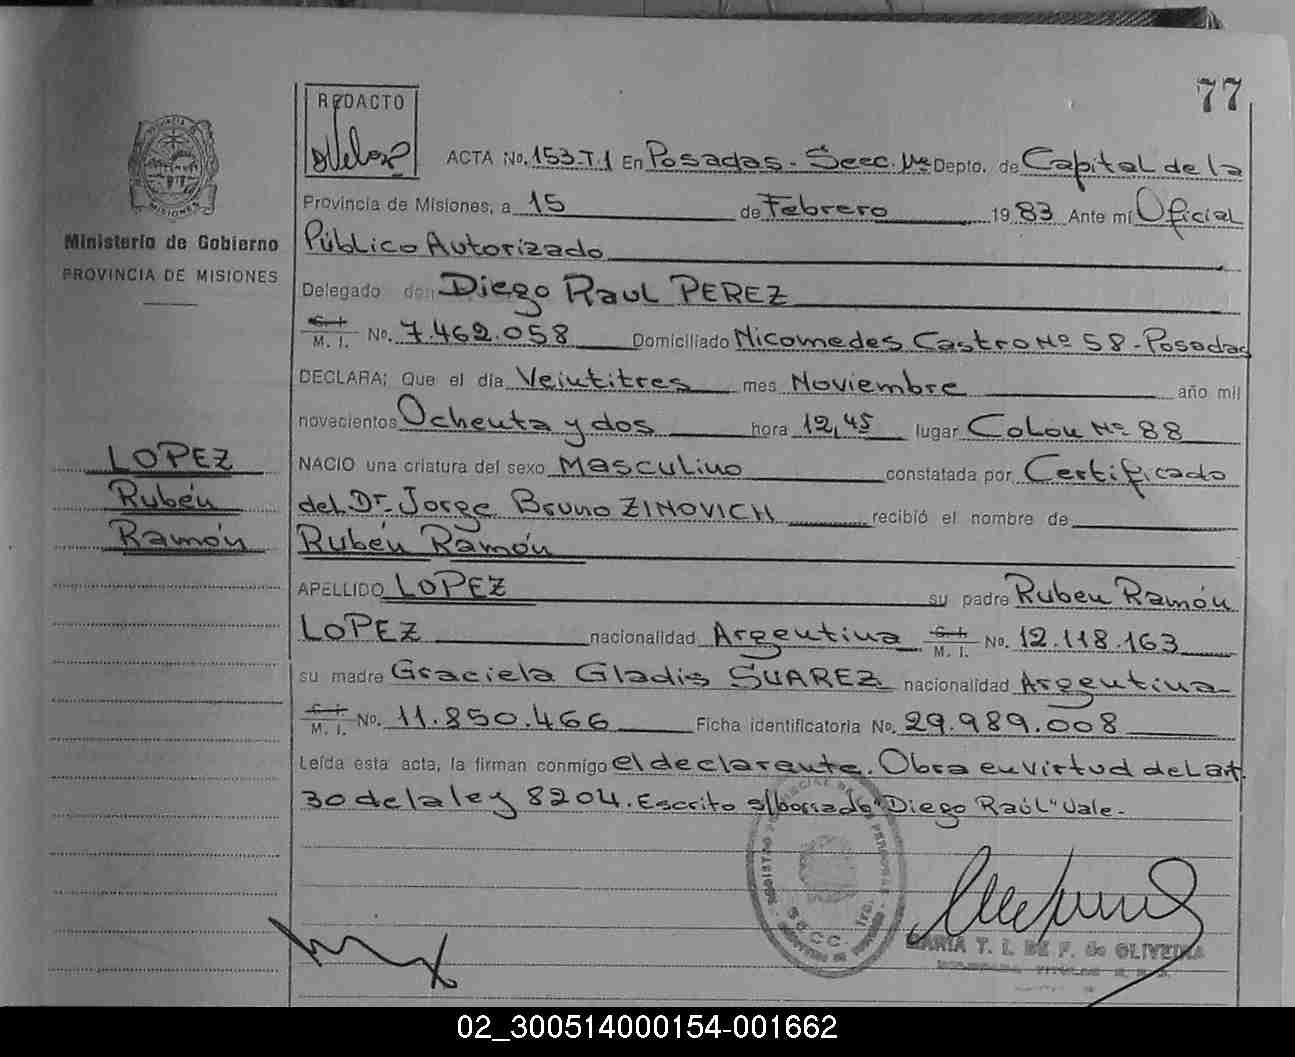 77
REDACTO
ACTA No. 153-T.1 En Posadas - Secc. 1ra Depto. de Capital de la
Provincia de Misiones, a 15 de Febrero 1983 Ante mí Oficial
Público Autorizado
Delegado don Diego Raul PEREZ
C. I. M. I. No. 7.462.058 Domiciliado Nicomedes Castro Nº 58 - Posadas
DECLARA; Que el día Veintitres mes Noviembre año mil
novecientos Ochenta y dos hora 12,45 lugar Colón Nº 88
NACIO una criatura del sexo Masculino constatada por Certificado
del Dr. Jorge Bruno ZINOVICH recibió el nombre de
Rubén Ramón
APELLIDO LOPEZ su padre Rubén Ramón
LOPEZ nacionalidad Argentina C. I. M. I. No. 12.118.163
su madre Graciela Gladis SUAREZ nacionalidad Argentina
C. I. M. I. No. 11.850.466 Ficha identificatoria No. 29.989.008
Leída esta acta, la firman conmigo el declarante. Obra en virtud del art.
30 de la ley 8204. Escrito s/borrado "Diego Raúl" Vale.-
Ministerio de Gobierno
PROVINCIA DE MISIONES
LOPEZ
Rubén
Ramón
SECC. 1ra.
MARIA T. I. DE F. de OLIVEIRA
02_300514000154-001662